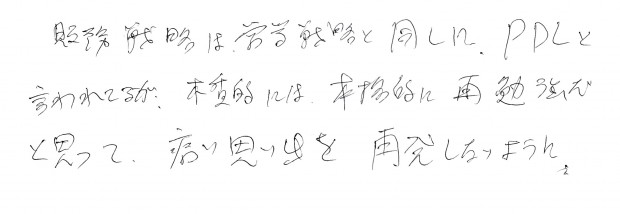 財務戦略は、営業戦略と同じに、PDCと
言われてるが、本質的には、本格的に再勉強だ
と思って、痛い思い出を再発しないように。